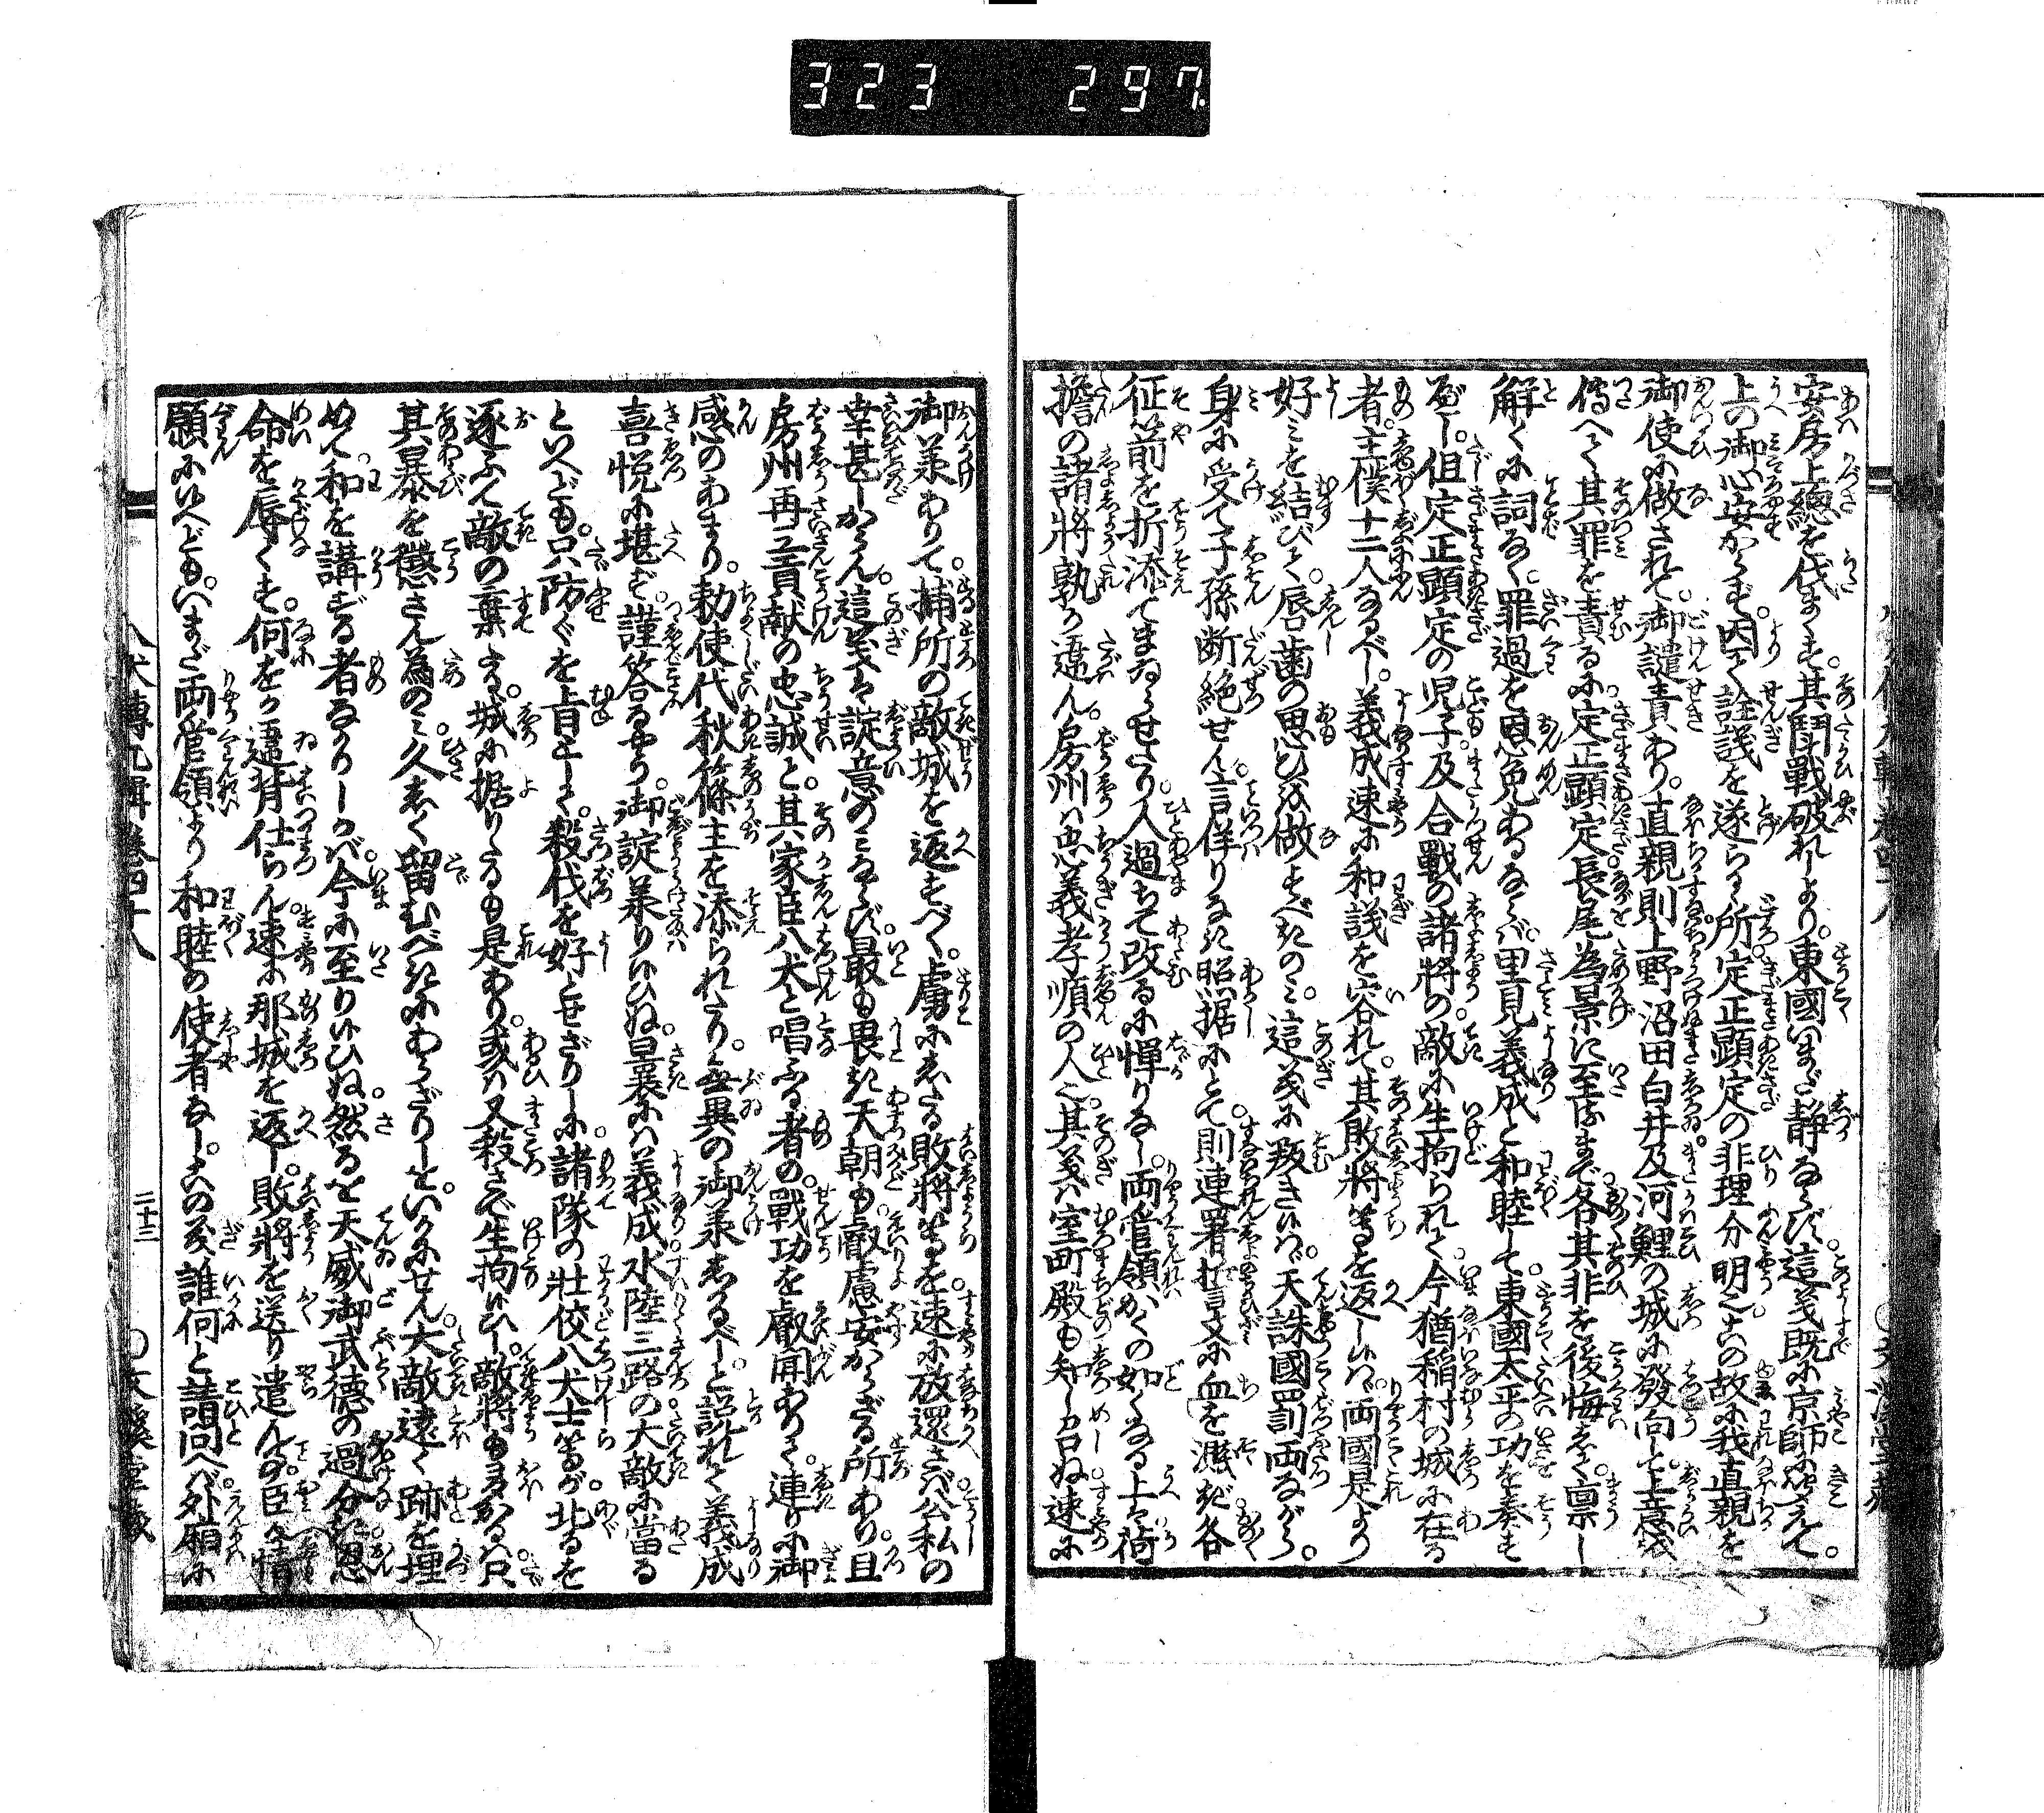 323 297
安房上總を伐まくす。其鬪戰破れしより。東國いまだ静ならず。這義既に京師に聞えて。
上の御心安からず。因て詮議を遂らるゝ所。定正顕定の非理分明也。この故に我直親を
御使に做されて。御譴責あり。直親則上野沼田白井及河鯉の城に發向し。上意を
傳へて其罪を責るに。定正顕定長尾為景に至るまで。各其非を後悔して。禀し
解くに詞なく。罪過を恩免あるならば。里見義成と和睦して。東國太平の功を奏す
べし。但定正顕定の児子。及合戰の諸將の。敵に生拘られて。今猶稲村の城に在る
者。主僕十二人なるべし。義成速に和議を容れて。其敗將等を返しなば。両國是より
好みを結びて。唇歯の思ひを做すべきのみ。這義に叛きなば。天誅國罰両ながら。
身に受て子孫断絶せん。言佯りなき照据にとて。則連署誓文に血を濺ぎ。各
征箭を折添てまゐらせたり。人過ちて改るに憚りなし。両管領かくの如くなる上は。荷
擔の諸將孰か違ん。房州は忠義孝順の人也。其義は室町殿も知し召ぬ。速に
御義あり て。捕所の敵城を返すべく。虜にしたる敗將等を。速に放還さば。公私の
幸甚しからん。這義は諚意のみならず。最も畏き天朝も。叡慮安からざる所あり。且
房州再三貢献の忠誠と。其家臣八犬と唱ふる者の。戰功を叡聞ありて。連りに御
感のあまり。勅使代秋篠主を添られたり。無異の御義しるべしと詔れて。義成
喜悦に堪ず。謹答るやう。御諚義りひぬ。曩暴には義成水陸三路の大敵に當る
といへども。只防ぐを旨として。殺伐を好とせざりしに。諸隊の壮佼八犬士等が。北るを
逐ふて敵の棄たる。城に据りたるも是あり。或は又殺さで生拘ひし。敵將も多かるは。只
其暴を懲さん為のみ。久しく留むべきにあらざりしを。いかにせん。大敵遠く跡を埋
めて。和を講ずる者なかりしかば。今に至りひぬ。然るを天威御武徳の。過分に恩
命を辱くす。何をか違背仕らん。速に那城を返し。敗將を送り遣んず。臣が情
願にいへども。いまだ両管領より。和睦の使者なし。この義誰何と請問へば外廂に
八犬傳九輯卷四十八
二十三